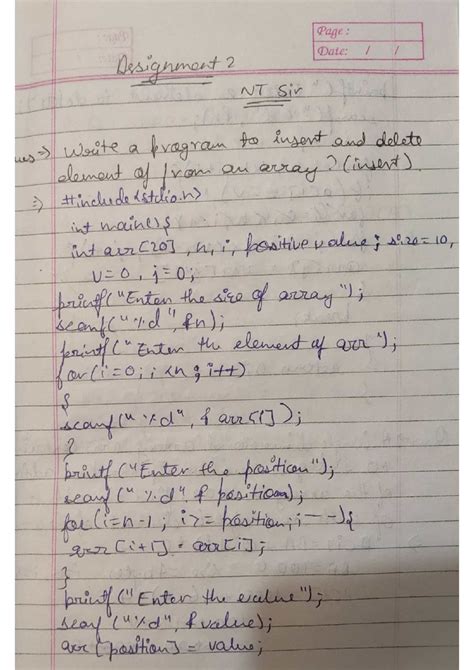 Page :
Date: / /
Assignment 2
NT Sir
ues => Write a program to insert and delete
element of from an array? (insert)
=> #include <stdio.h>
int main() {
int arr[20], n, i, positive value; size = 10,
v=0, j=0;
printf("Enter the size of array");
scanf("%d", &n);
printf("Enter the element of arr");
for(i=0; i<n; i++)
{
scanf("%d", &arr[i]);
}
printf("Enter the position");
scanf("%d" & position);
for(i=n-1; i>=position; i--){
arr[i+1] = arr[i];
}
printf("Enter the value");
scanf("%d", &value);
arr[position] = value;